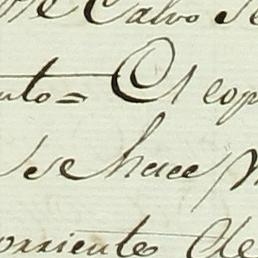 Calvo Se
nto = El cop
se hace m
orriente de